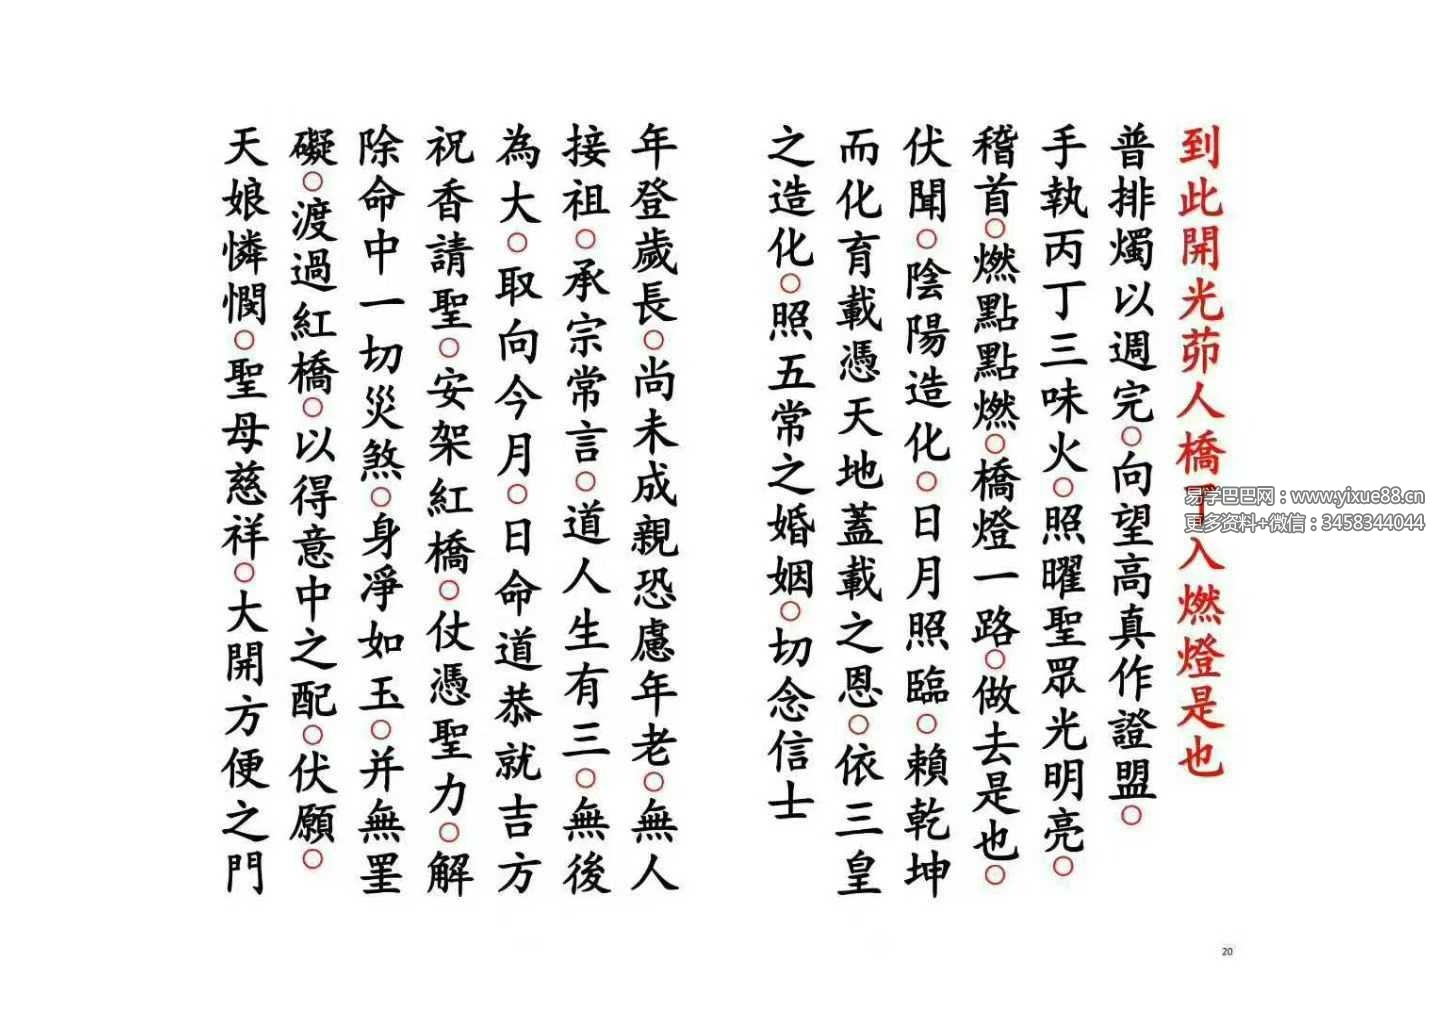 到此開光茆人橋下入燃燈是也
普排燭以週完○向望高真作證盟○
手執丙丁三味火○照曜聖眾光明亮○
稽首○燃點點燃○橋燈一路○做去是也○
伏聞○陰陽造化○日月照臨○賴乾坤
而化育載憑天地蓋載之恩○依三皇
之造化○照五常之婚姻○切念信士
年登歲長○尚未成親恐慮年老○無人
接祖○承宗常言○道人生有三○無後
為大○取向今月○日命道恭就吉方
祝香請聖○安架紅橋○仗憑聖力○解
除命中一切災煞○身凈如玉○并無罣
礙○渡過紅橋○以得意中之配○伏願○
天娘憐憫○聖母慈祥○大開方便之門
易学巴巴网：www.yixue88.cn
更多资料+微信：3458344044
20